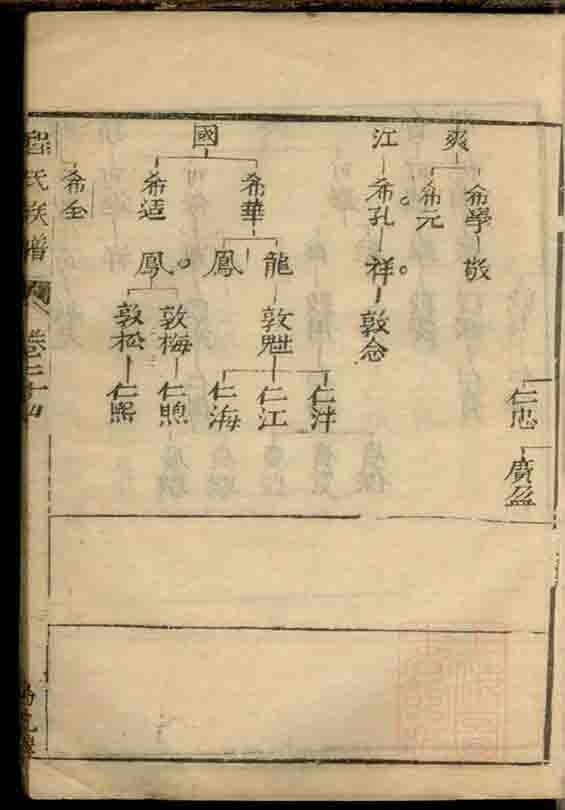 仁忠
廣盈
爽
希學
敬
希元
江
希孔
祥
敦念
國
希華
龍
敦魁
仁洋
仁江
仁海
鳳
希适
鳳
敦梅
仁煦
敦松
仁熙
希全
氏族譜
卷二十四